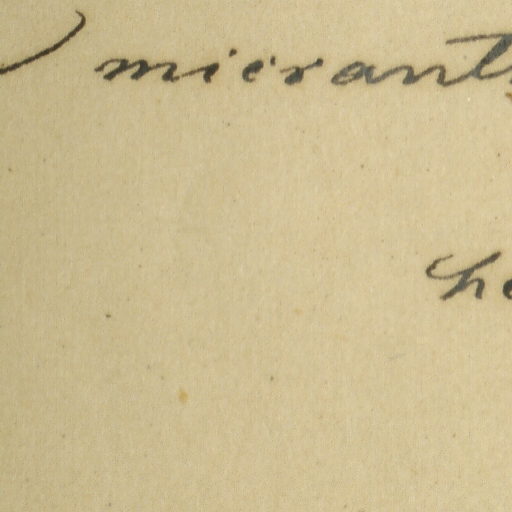 micrant
he